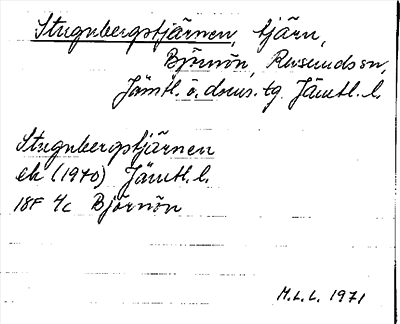 Stugubergstjärnen, tjärn,
Björnön, Revsundssn,
Jämtl. ö. doms. tg. Jämtl. l.
Stugubergstjärnen
ek (1940) Jämtl. l.
18F 4c Björnön
M.L.L. 1971